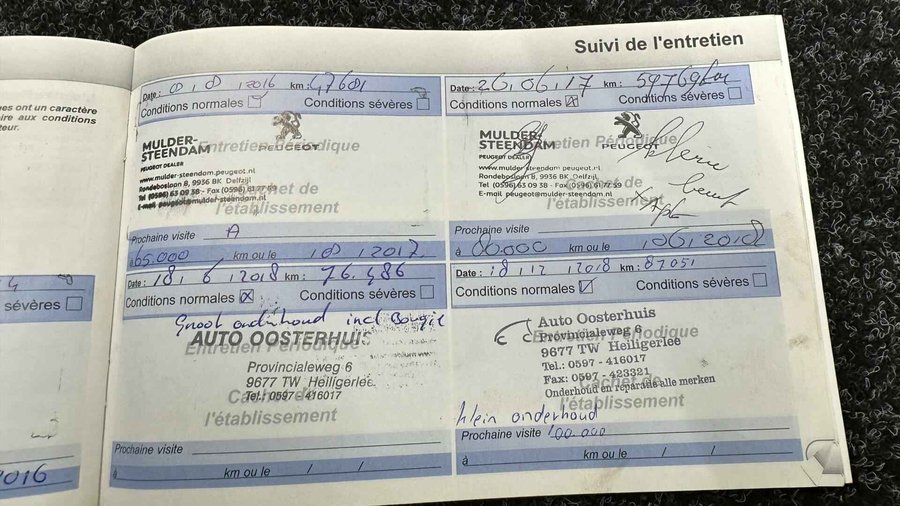 Suivi de l'entretien
es ont un caractère
ire aux conditions
teur.
sévères
2016
Date : 8 2016 km : 47601
Conditions normales Conditions sévères
MULDER-
STEENDAM
PEUGEOT DEALER
PEUGEOT
Entretien Périodique
www.mulder-steendam.peugeot.nl
Rondeboslaan 8, 9936 BK Delfzijl
Tel (0596) 63 09 38 - Fax (0596) 61 77 59
E-mail peugeot@mulder-steendam.nl
Cachet de
l'établissement
Prochaine visite A
à 65.000 km ou le 10 / 2017
Date : 26.06.17 km : 59769 km
Conditions normales Conditions sévères
MULDER-
STEENDAM
PEUGEOT DEALER
PEUGEOT
Entretien Périodique
www.mulder-steendam.peugeot.nl
Rondeboslaan 8, 9936 BK Delfzijl
Tel. (0596) 63 09 38 - Fax (0596) 61 77 59
E-mail peugeot@mulder-steendam.nl
Cachet de
l'établissement
Prochaine visite
à 80.000 km ou le 06 / 2018
Date : 18. 6 2018 km : 76.486
Conditions normales Conditions sévères
Groot onderhoud incl Bougie
AUTO OOSTERHUIS
Entretien Périodique
Provincialeweg 6
9677 TW Heiligerlee
Tel.: 0597 - 416017
Cachet de
l'établissement
Prochaine visite
à km ou le / /
Date : 18 12 2018 km : 87051
Conditions normales Conditions sévères
Auto Oosterhuis
Entretien Périodique
Provincialeweg 6
9677 TW Heiligerlee
Tel.: 0597 - 416017
Fax: 0597 - 423321
Onderhoud en reparatie alle merken
Cachet de
l'établissement
klein onderhoud
Prochaine visite 100.000
à km ou le / /